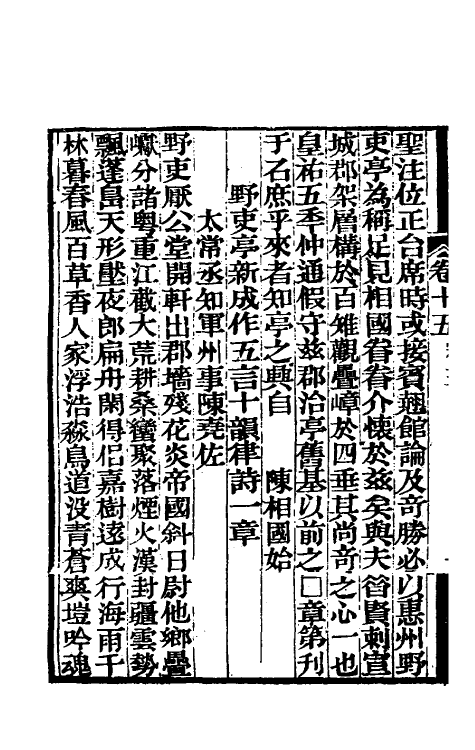 卷十五
聖注位正台席時或接賓翹館論及奇勝必以惠州野
吏亭為稱足見相國眷眷介懷於茲矣與夫昝賁刺宣
城郡架層構於百雉觀疊嶂於四垂其尚奇之心一也
皇祐五季仲通假守茲郡治亭舊基以前之□章第刊
于石庶乎來者知亭之興自 陳相國始
野吏亭新成作五言十韻律詩一章
太常丞知軍州事陳堯佐
野吏厭公堂開軒出郡墻殘花炎帝國斜日尉他鄉疊
巘分諸粵重江截大荒耕桑蠻聚落煙火漢封疆雲勢
飄蓬島天形壓夜郎扁舟閑得侶嘉樹遠成行海雨千
林暮春風百草香人家浮浩淼鳥道沒青蒼爽塏吟魂